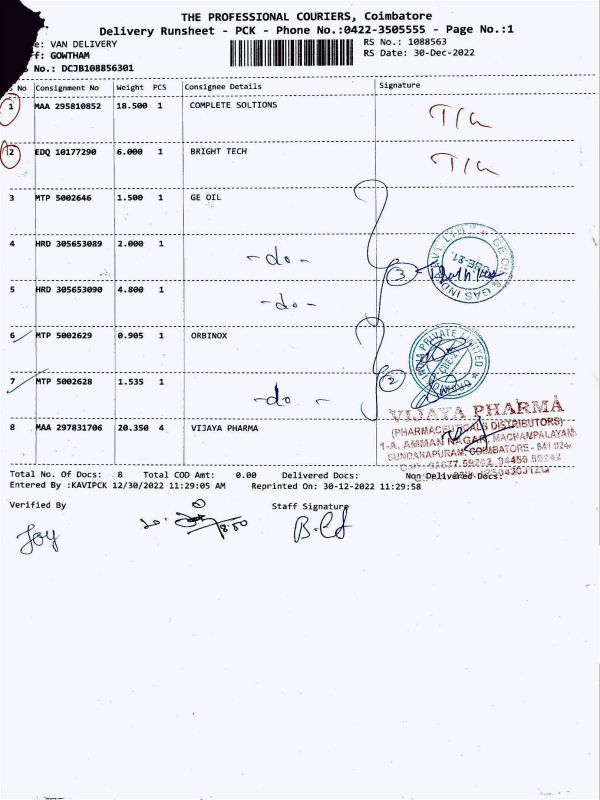 THE PROFESSIONAL COURIERS, Coimbatore
Delivery Runsheet - PCK - Phone No.:0422-3505555 - Page No.:1
e: VAN DELIVERY
RS No.: 1088563
f: GOWTHAM
RS Date: 30-Dec-2022
No.: DCJB108856301
No Consignment No Weight PCS Consignee Details Signature
1 MAA 295810852 18.500 1 COMPLETE SOLTIONS
2 EDQ 10177290 6.000 1 BRIGHT TECH
3 MTP 5002646 1.500 1 GE OIL
4 HRD 305653089 2.000 1 -do-
3
5 HRD 305653090 4.800 1 -do-
6 MTP 5002629 0.905 1 ORBINOX
7 MTP 5002628 1.535 1 -do-
2
8 MAA 297831706 20.350 4 VIJAYA PHARMA
VIJAYA PHARMA
(PHARMACEUTICALS DISTRIBUTORS)
1-A, AMMAN NAGAR, MACHAMPALAYAM
SUNDARAPURAM, COIMBATORE - 641 024
Total No. Of Docs: 8 Total COD Amt: 0.00 Delivered Docs: Non Delivered Docs:
Entered By :KAVIPCK 12/30/2022 11:29:05 AM Reprinted On: 30-12-2022 11:29:58
Verified By Staff Signature
Joy